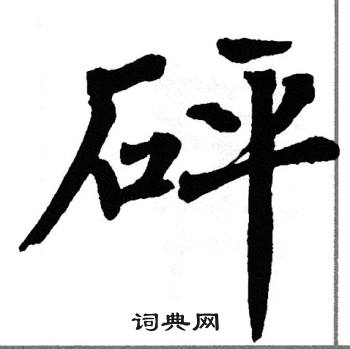 砰
词典网